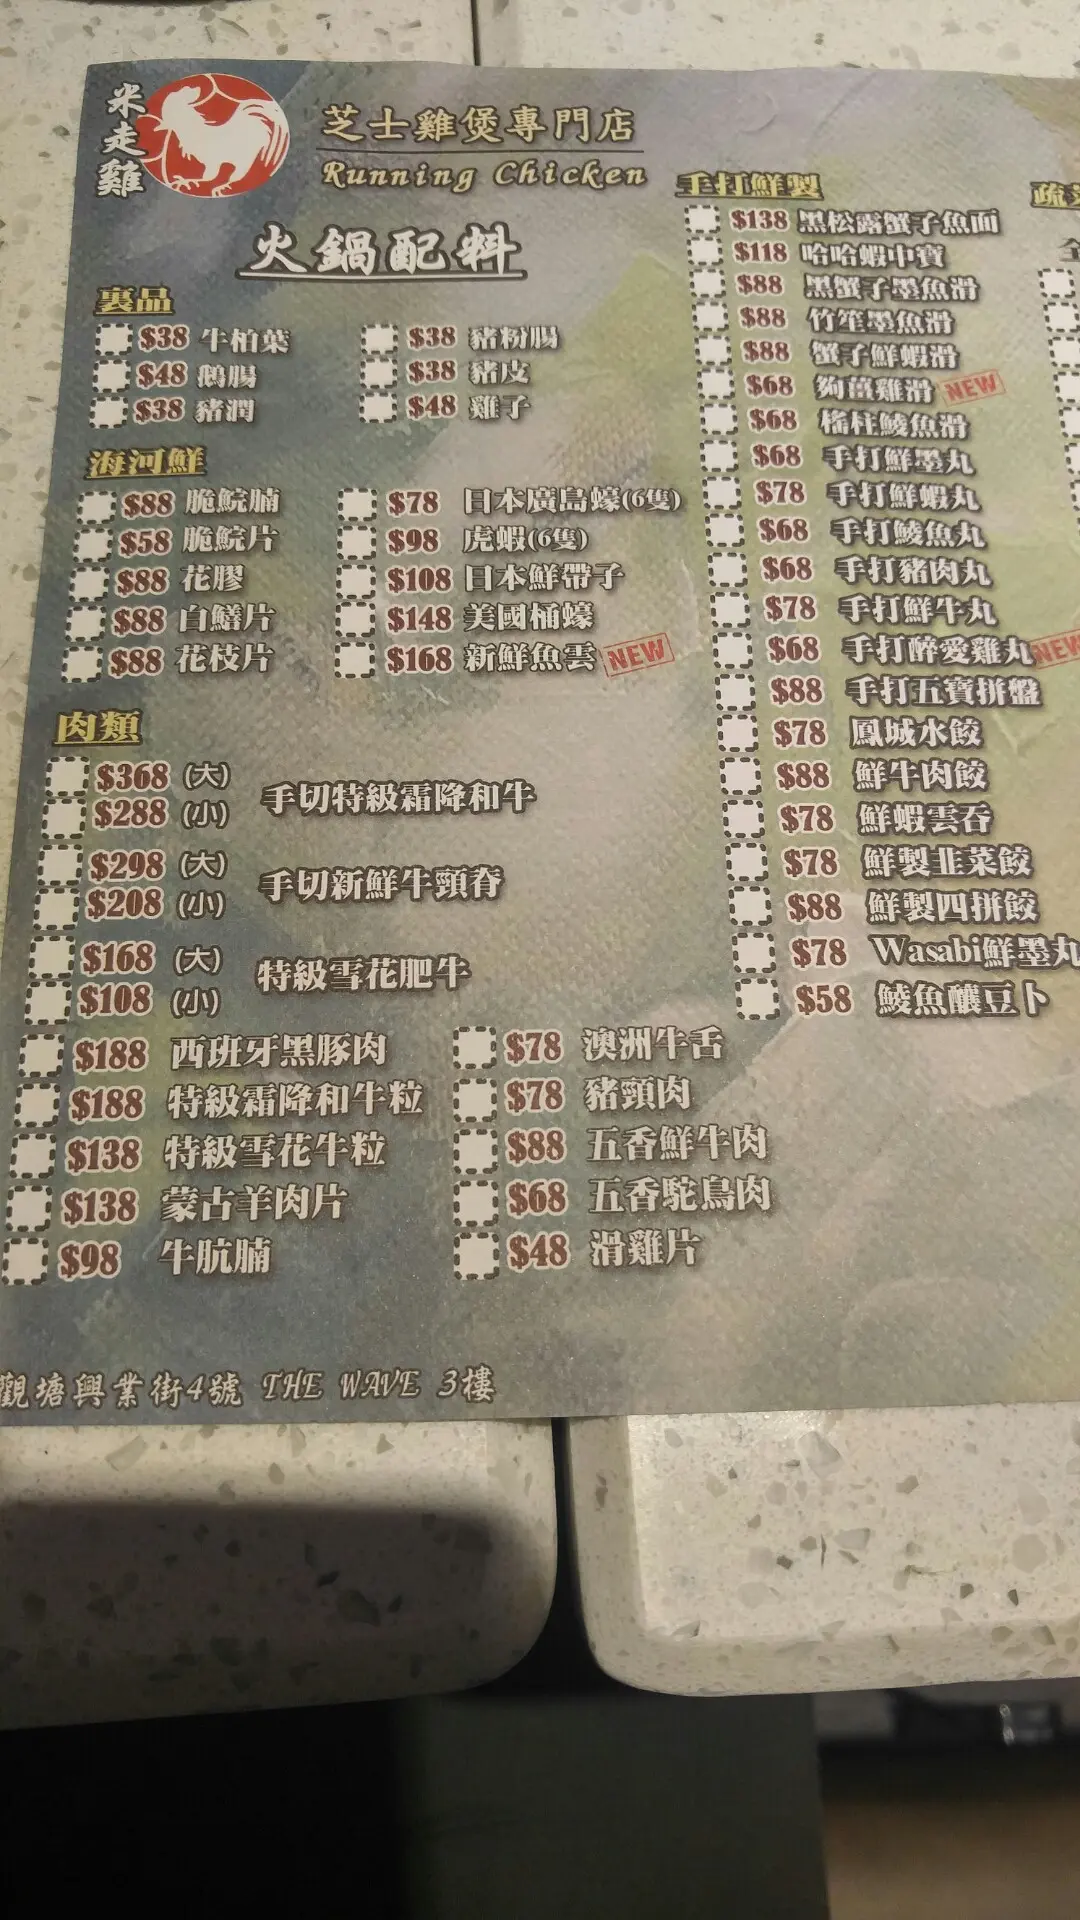 米走雞
芝士雞煲專門店
Running Chicken
火鍋配料
裏品
$38 牛柏葉
$38 豬粉腸
$48 鵝腸
$38 豬皮
$38 豬潤
$48 雞子
海河鮮
$88 脆鯇腩
$78 日本廣島蠔(6隻)
$58 脆鯇片
$98 虎蝦(6隻)
$88 花膠
$108 日本鮮帶子
$88 白鱔片
$148 美國桶蠔
$88 花枝片
$168 新鮮魚雲 NEW
肉類
$368 (大)
$288 (小)
手切特級霜降和牛
$298 (大)
$208 (小)
手切新鮮牛頸脊
$168 (大)
$108 (小)
特級雪花肥牛
$188 西班牙黑豚肉
$78 澳洲牛舌
$188 特級霜降和牛粒
$78 豬頸肉
$138 特級雪花牛粒
$88 五香鮮牛肉
$138 蒙古羊肉片
$68 五香駝鳥肉
$98 牛肮腩
$48 滑雞片
手打鮮製
$138 黑松露蟹子魚面
$118 哈哈蝦中寶
$88 黑蟹子墨魚滑
$88 竹笙墨魚滑
$88 蟹子鮮蝦滑
$68 夠薑雞滑 NEW
$68 瑤柱鯪魚滑
$68 手打鮮墨丸
$78 手打鮮蝦丸
$68 手打鯪魚丸
$68 手打豬肉丸
$78 手打鮮牛丸
$68 手打醉愛雞丸 NEW
$88 手打五寶拼盤
$78 鳳城水餃
$88 鮮牛肉餃
$78 鮮蝦雲吞
$78 鮮製韭菜餃
$88 鮮製四拼餃
$78 Wasabi鮮墨丸
$58 鯪魚釀豆卜
疏
全
觀塘興業街4號 THE WAVE 3樓